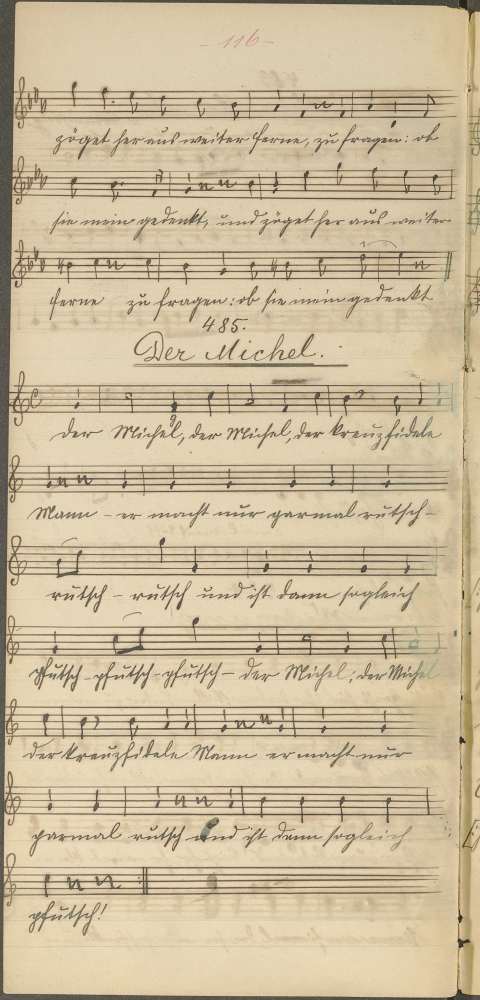 - 116 -
zöget her aus weiter Ferne, zu fragen: ob
sie mein gedenkt, und zöget her aus weiter
Ferne zu fragen: ob sie mein gedenkt
485.
Der Michel.
Der Michel, der Michel, der kreuzfidele
Mann - er macht nur garmal rutsch -
rutsch - rutsch und ist dann sogleich
pfutsch - pfutsch - pfutsch - der Michel, der Michel
der kreuzfidele Mann er macht nur
garmal rutsch und ist dann sogleich
pfutsch!